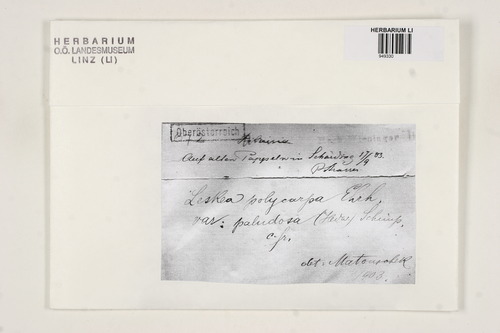 HERBARIUM
O.Ö. LANDESMUSEUM
LINZ (LI)
HERBARIUM LI
949330
Oberösterreich
Auf alten Pappeln in Schärding 17/9 83.
Leskea polycarpa Ehrh.
var: paludosa (Hedw) Schimp.
c. fr.
det: Matouschek
1903.